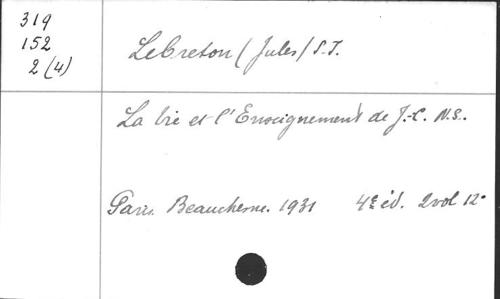 319
152
2 (4)
Lebreton (Jules) S.J.
La Vie et l'Enseignement de J.-C. N.S.
Paris. Beauchesne. 1931 4e éd. 2 vol 12°